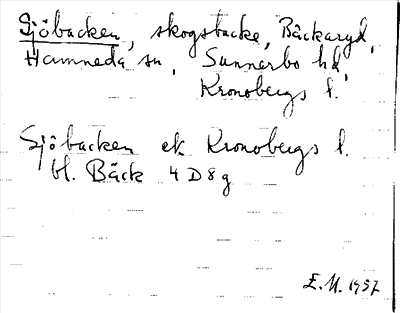 Sjöbacken, skogsbacke, Bäckaryd,
Hamneda sn, Sunnerbo hd,
Kronobergs l.
Sjöbacken ek Kronobergs l.
bl. Bäck 4 D 8 g
E.M. 1957